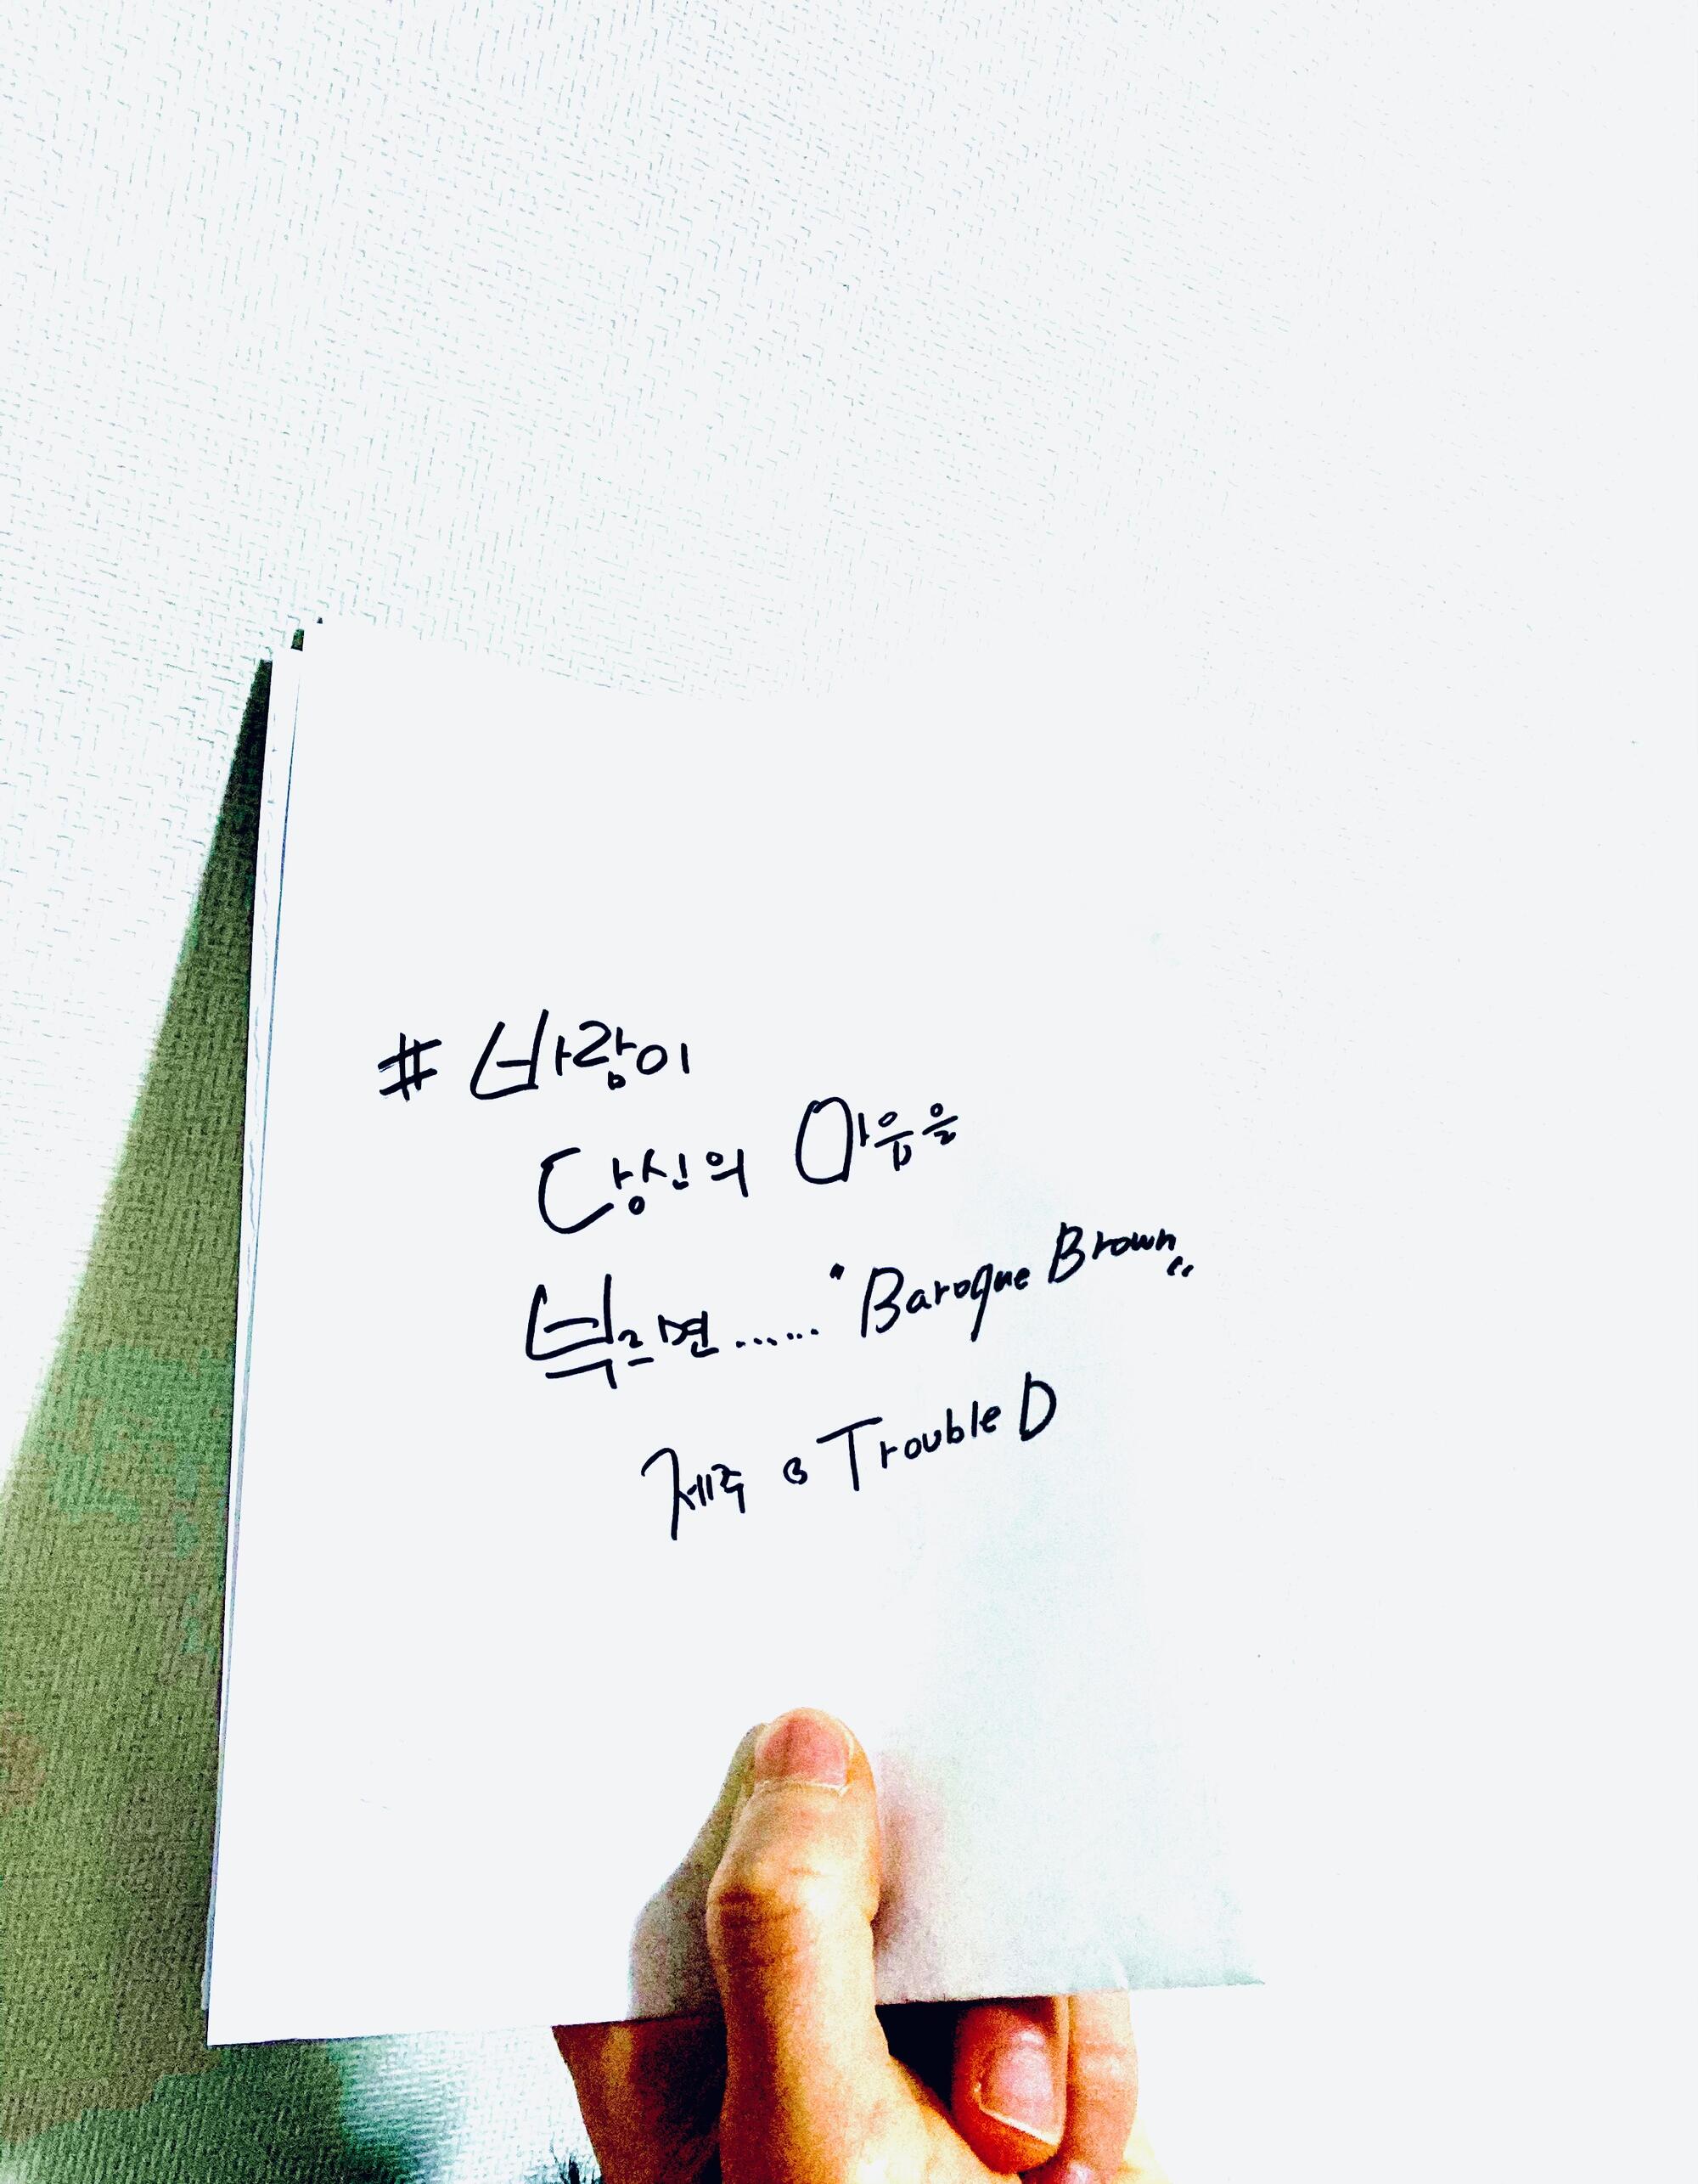 # 바람이
당신의 마음을
부르면...... "Baroque Brown"
제주 Trouble D